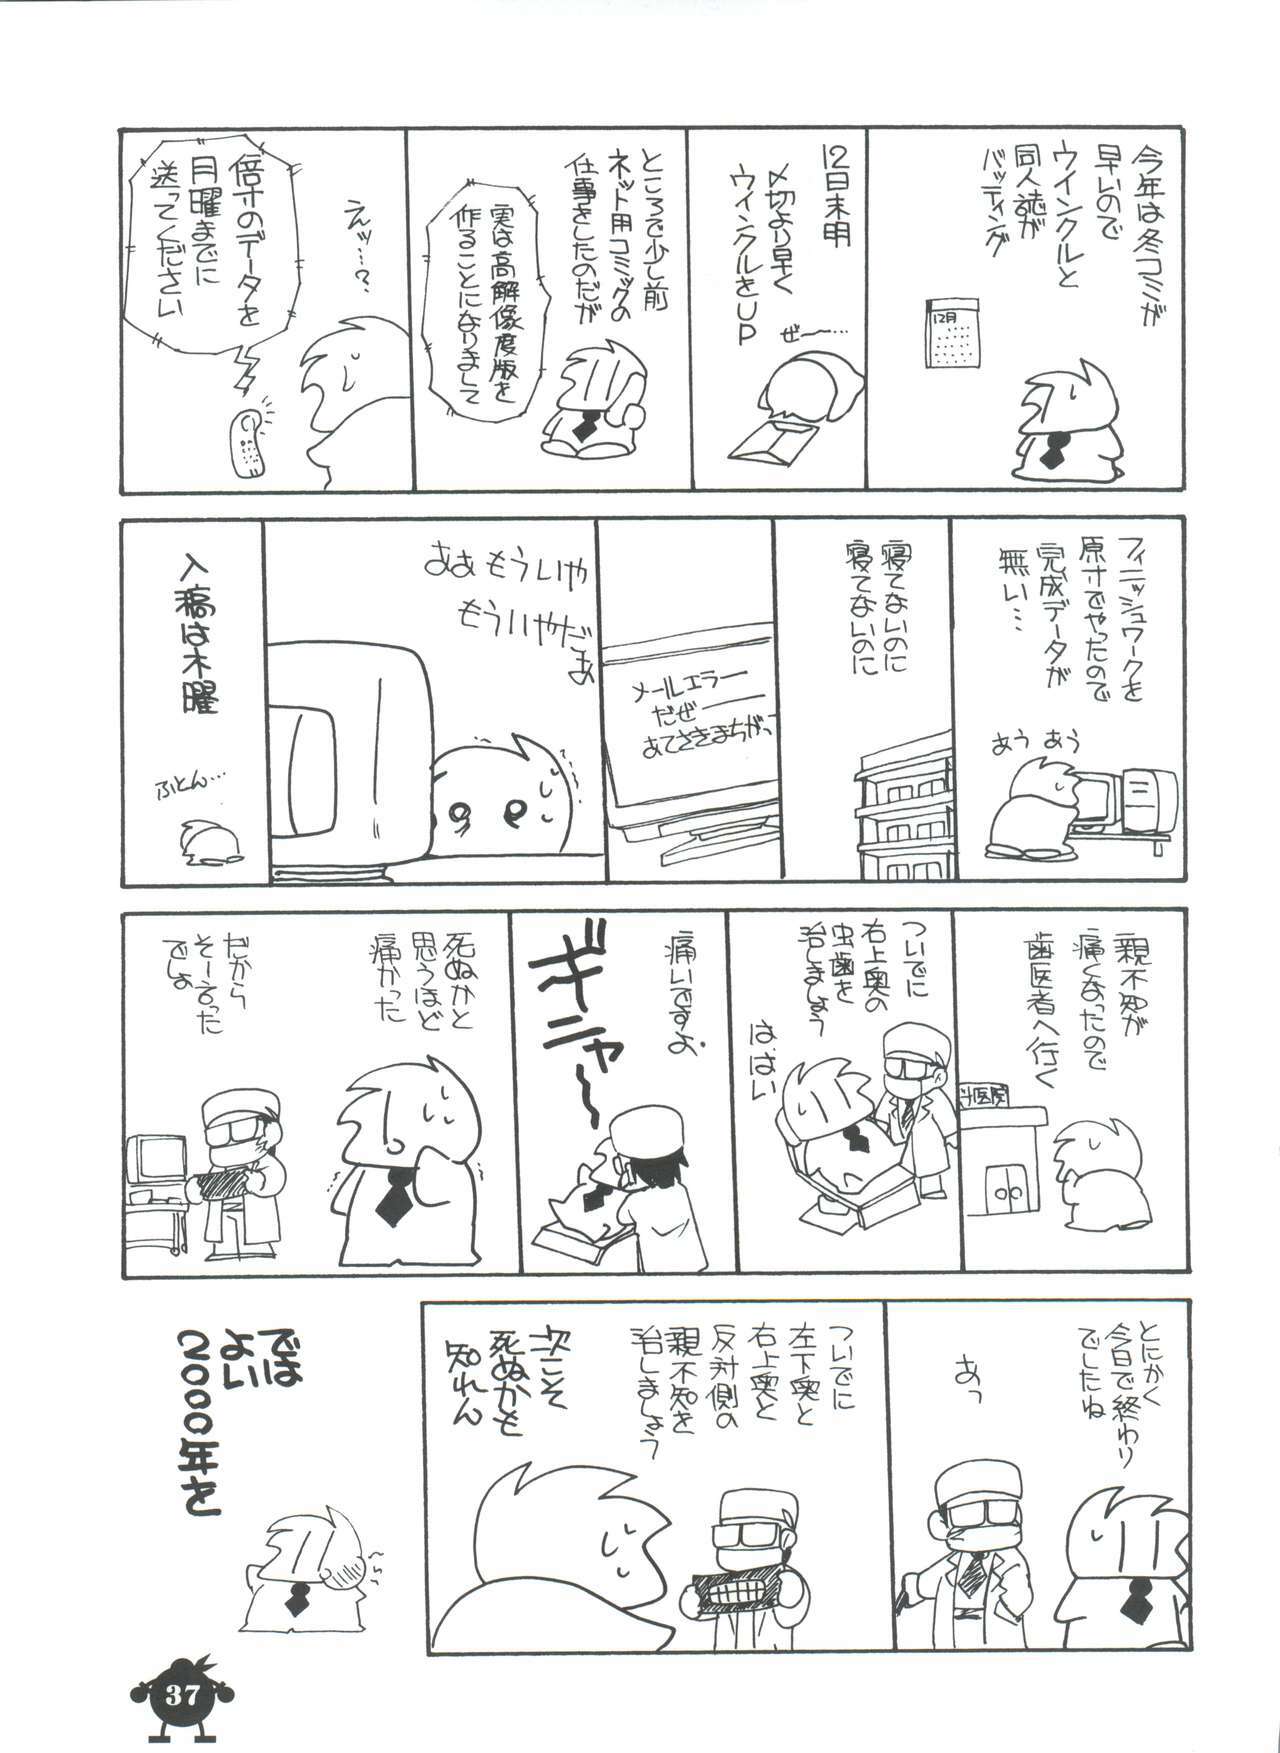 今年は冬コミが
早いので
ウインクルと
同人誌が
バッティング
12月
12日未明
〆切より早く
ウィンクルをUP
ぜ〜〜…
ところで少し前
ネット用コミックの
仕事をしたのだが
実は高解像度版を
作ることになりまして
えッ…?
倍寸のデータを
月曜までに
送ってください
フィニッシュワークを
原寸でやったので
完成データが
無い…
あう あう
寝てないのに
寝てないのに
メールエラー
だぜ――
あてさきまちがっ
ああもういや
もういやだ
あ
入稿は木曜
ふとん…
親不知が
痛くなったので
歯医者へ行く
科医院
ついでに
右上奥の
虫歯を
治しましょう
は、はい
痛いですよ
ギニャ〜〜
死ぬかと
思うほど
痛かった
だから
そー言った
でしょ
とにかく
今日で終わり
でしたね
あっ
ついでに
左下奥と
右上奥と
反対側の
親不知を
治しましょう
次こそ
死ぬかも
知れん
では
よい
2000年を
37